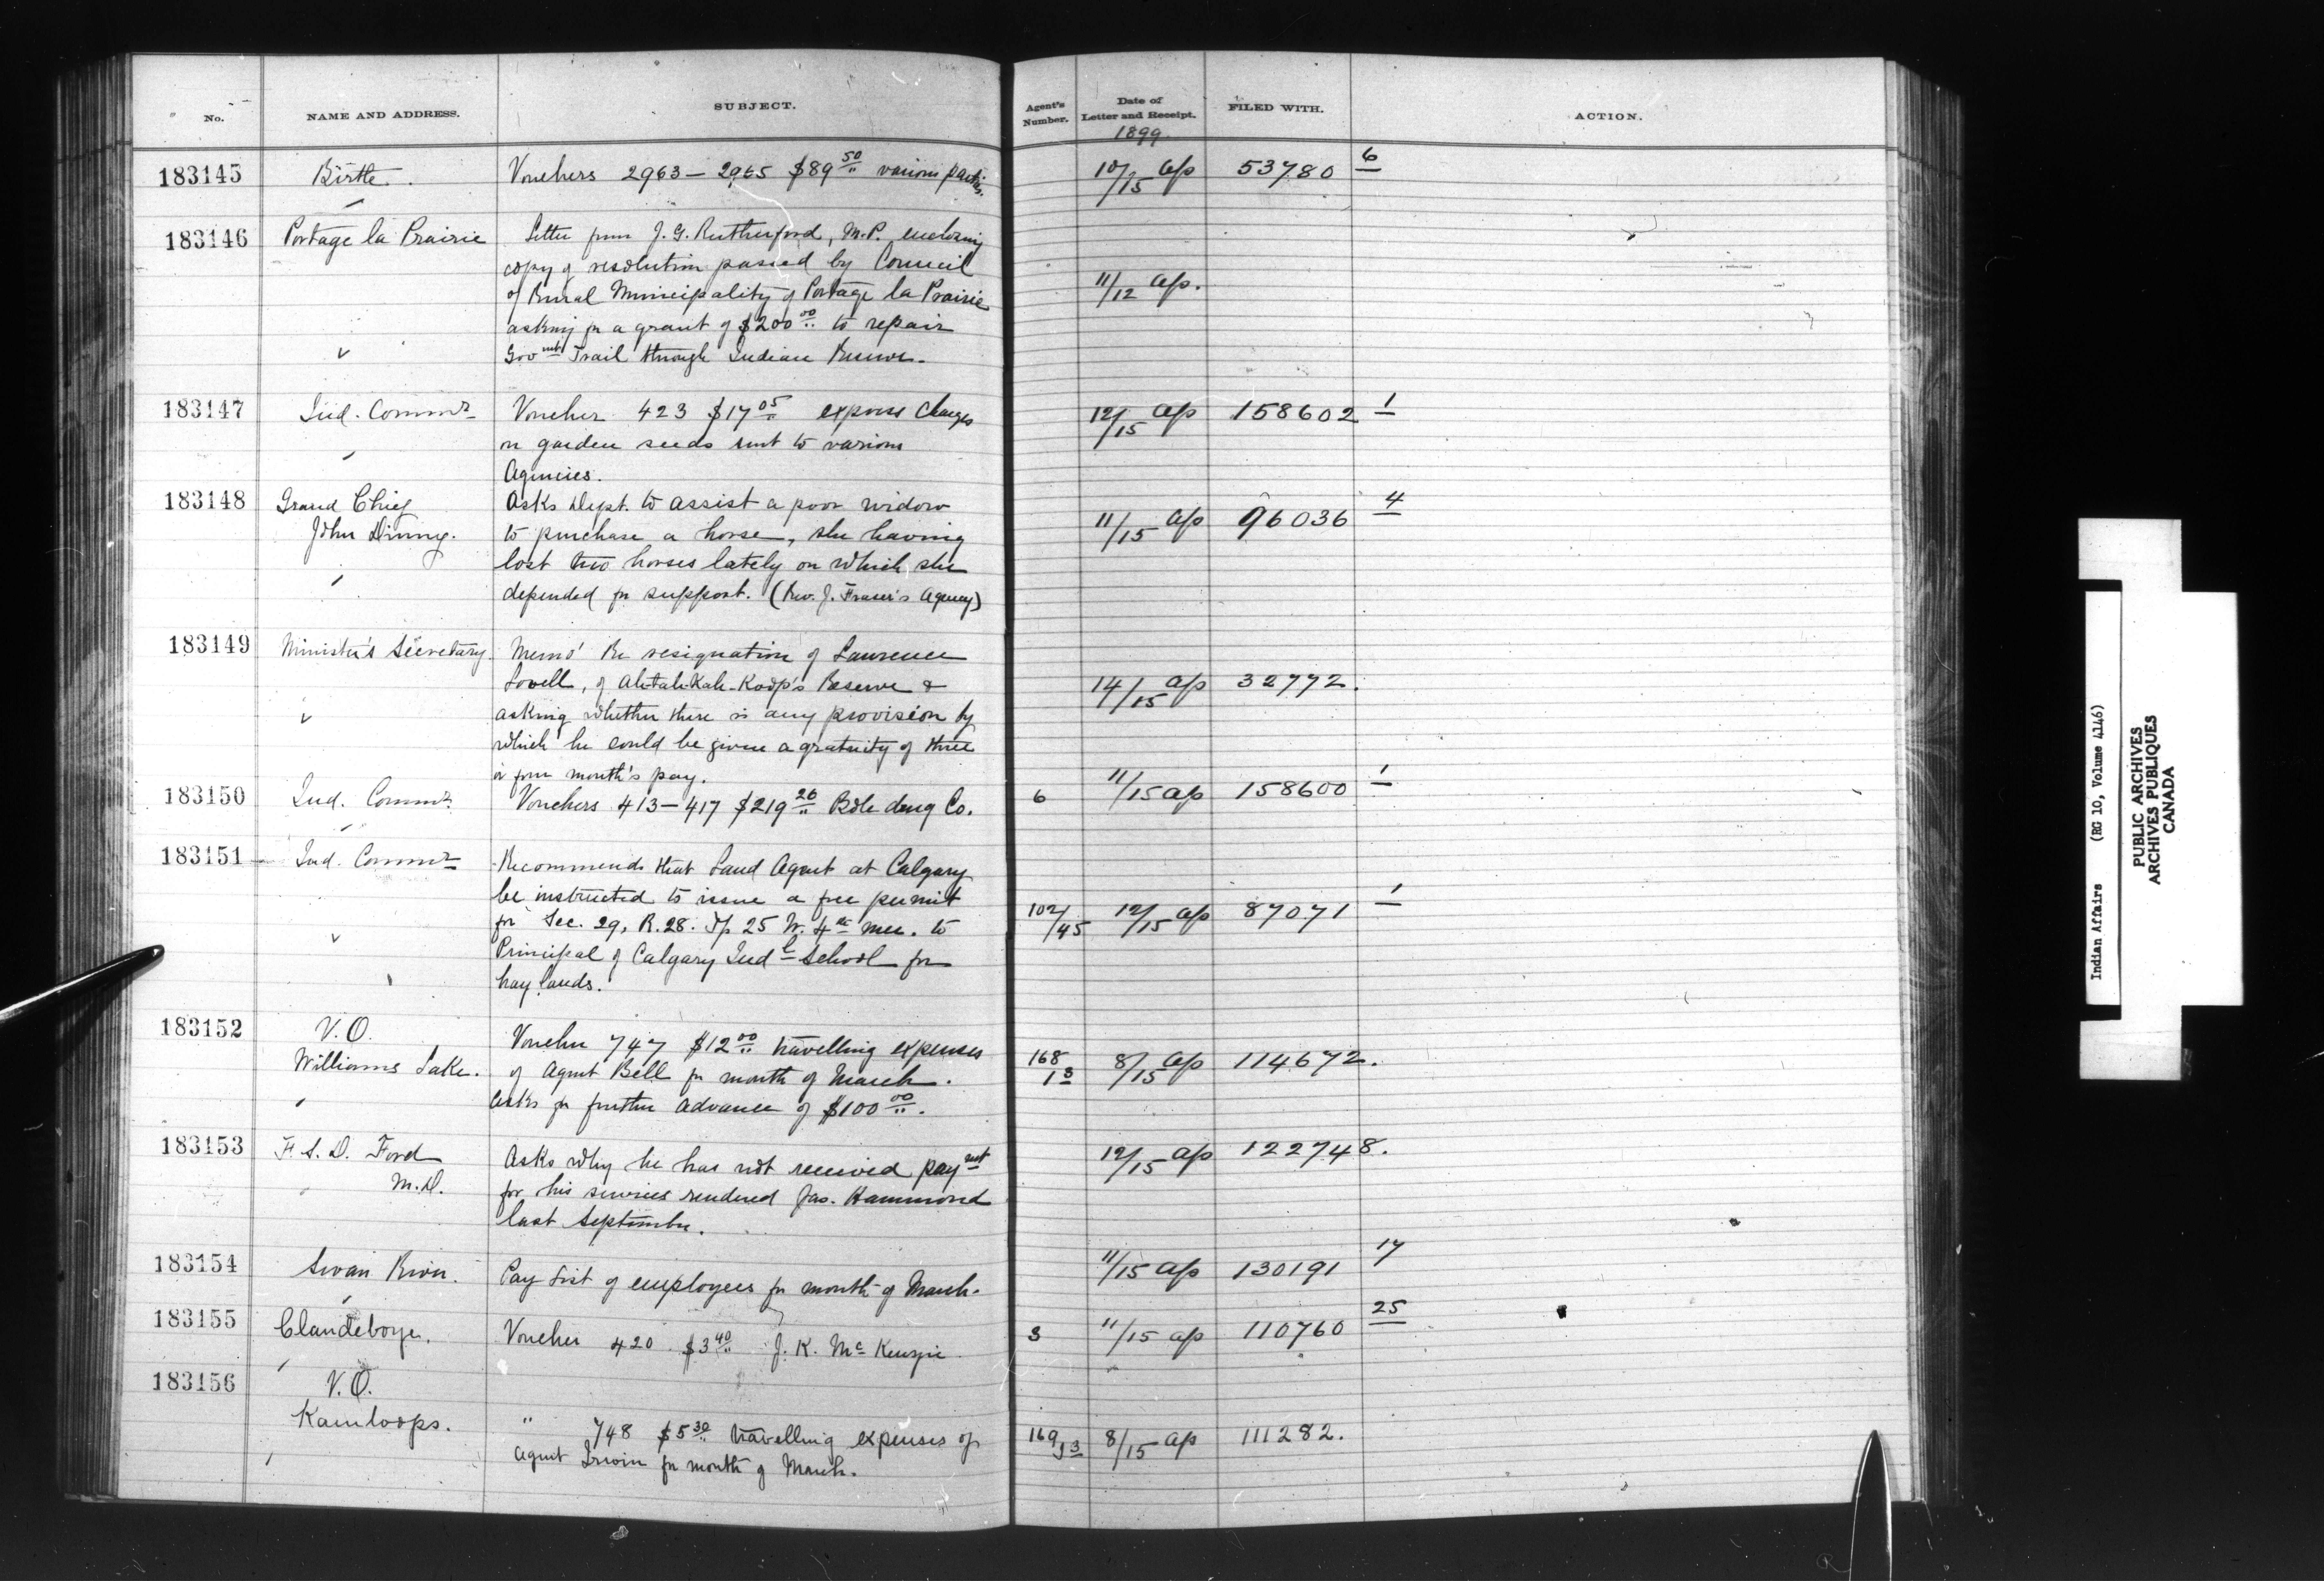 No. NAME AND ADDRESS. SUBJECT. Agent's Number. Date of Letter and Receipt. FILED WITH. ACTION.
1899
183145 Birtle. Vouchers 2963 — 2965 $89 50 various parties. 10/15 Ap 53780 6
183146 Portage la Prairie Letter from J. G. Rutherford, M.P. enclosing
copy of resolution passed by Council
of Rural Municipality of Portage la Prairie 11/12 Ap.
asking for a grant of $200 00 to repair
Govmt Trail through Indian Reserve.
183147 Ind. Commr Voucher 423 $17 05 express charges 12/15 Ap 158602 1
on garden seeds sent to various
Agencies.
183148 Grand Chief Asks Dept. to assist a poor widow 11/15 Ap 96036 4
John Dinny. to purchase a horse, she having
lost two horses lately on which she
depended for support. (Rev. J. Fraser's Agency)
183149 Minister's Secretary. Memo' Re resignation of Laurence
Lovell, of Ah-tah-Kah-Koop's Reserve & 14/15 Ap 32772.
asking whether there is any provision by
which he could be given a gratuity of three
or four month's pay.
183150 Ind. Commr Vouchers 413 — 417 $219 26 Bole drug Co. 6 11/15 Ap 158600 1
183151 Ind. Commr Recommends that Land Agent at Calgary
be instructed to issue a free permit
for Sec. 29, R. 28. Tp 25 W. 4th mer. to 102/45 12/15 Ap 87071 1
Principal of Calgary Indl School for
hay lands.
183152 V.O. Voucher 747 $12 00 travelling expenses
Williams Lake. of Agent Bell for month of March. 168/13 8/15 Ap 114672.
Asks for further advance of $100 00.
183153 F. S. D. Ford Asks why he has not received paymt 12/15 Ap 122748.
M.D. for his services rendered Jas. Hammond
last September.
183154 Swan River. Pay List of employees for month of March. 11/15 Ap 130191 17
183155 Clandeboye. Voucher 420 $3 40 J. K. McKenzie 3 11/15 Ap 110760 25
183156 V.O.
Kamloops. " 748 $5 30 travelling expenses of 169/13 8/15 Ap 111282.
Agent Irwin for month of March.
Indian Affairs (RG 10, Volume 4146)
PUBLIC ARCHIVES
ARCHIVES PUBLIQUES
CANADA